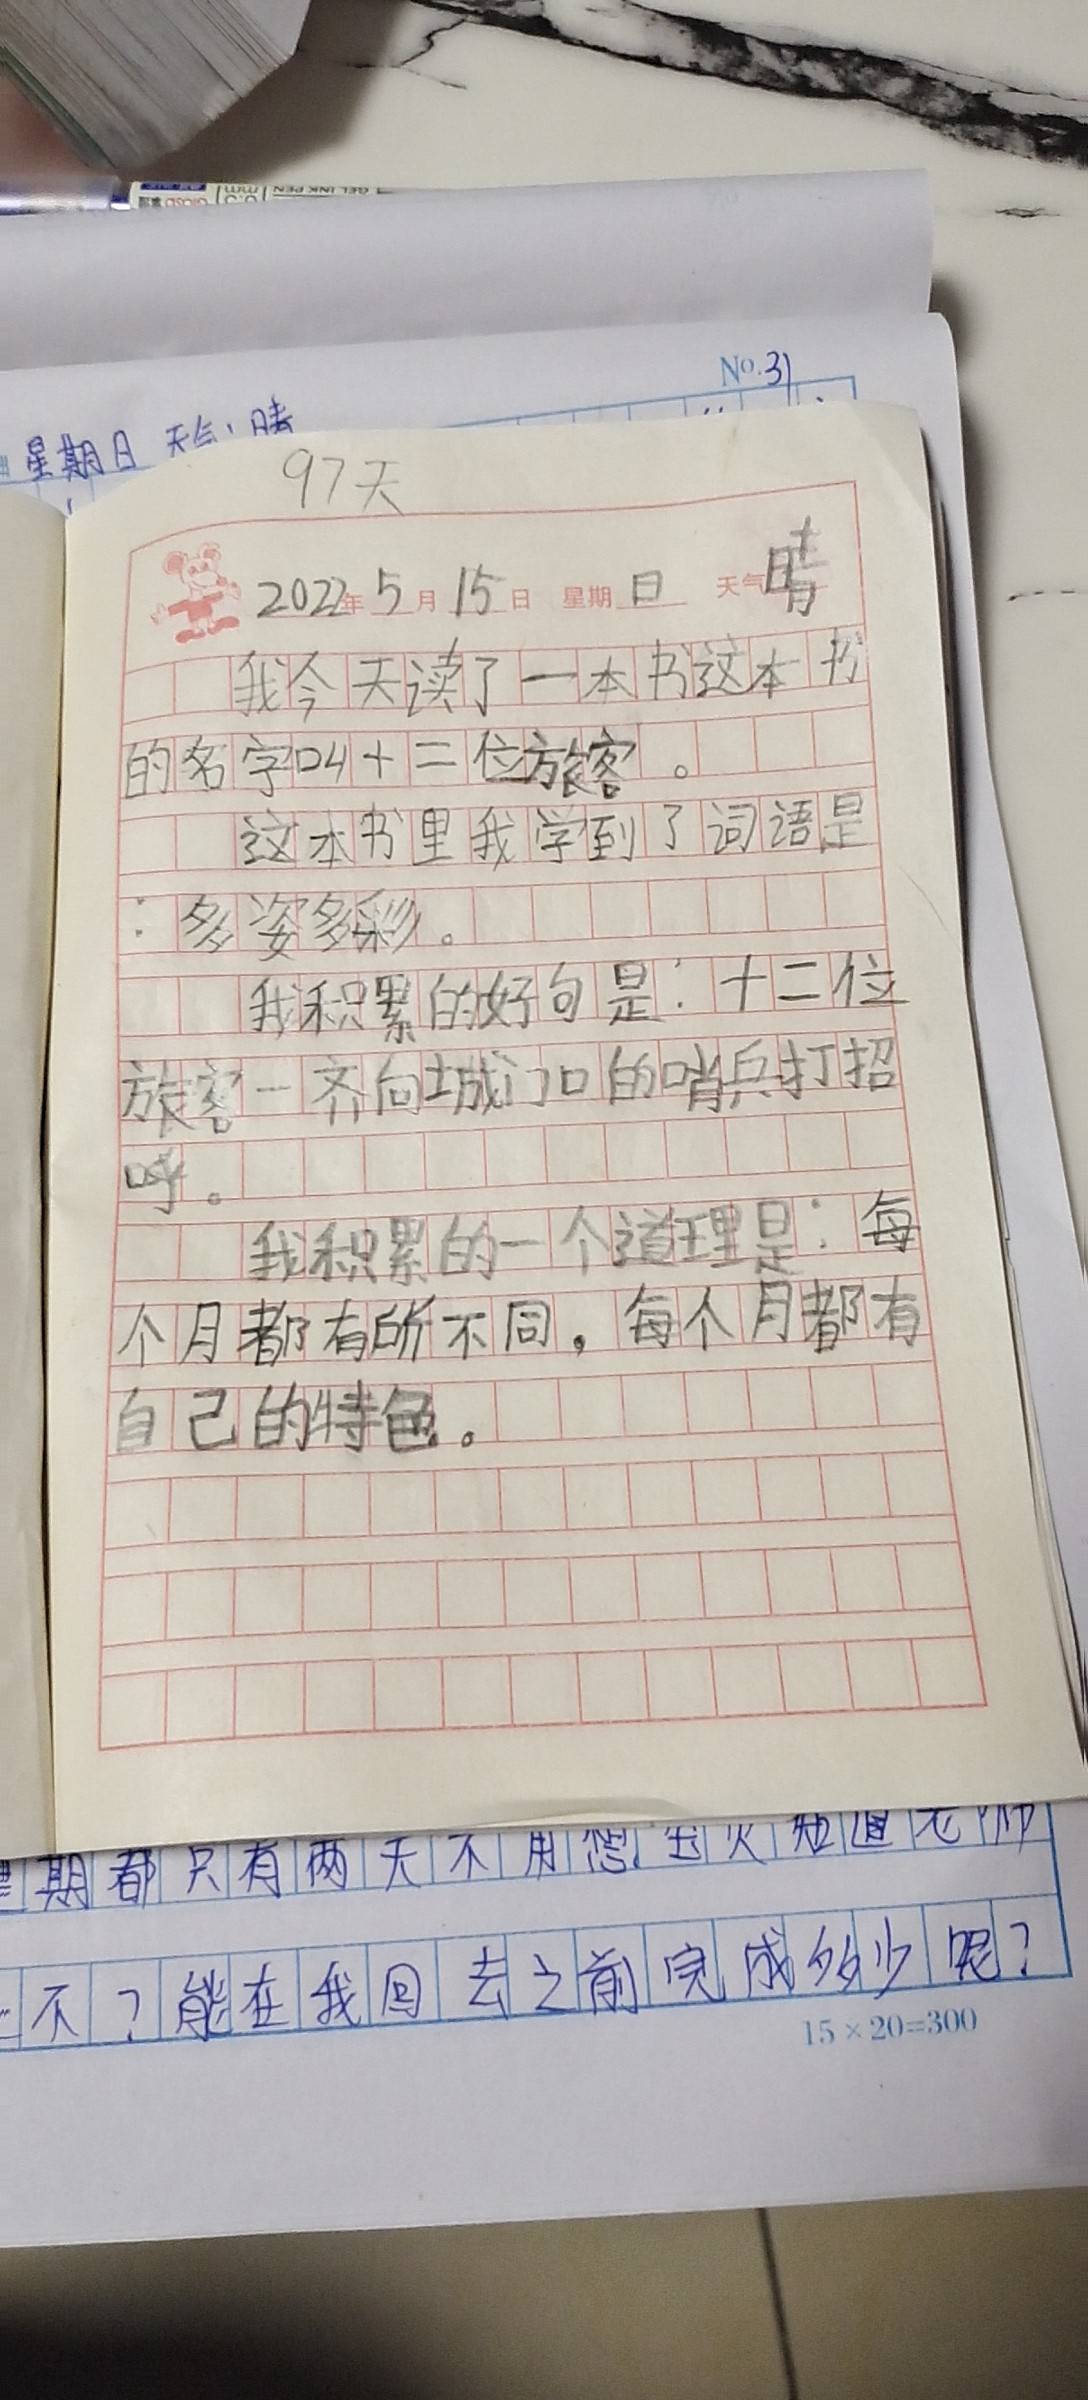 No.31
星期日 天气:晴
97天
2022年5月15日 星期日 天气晴
我今天读了一本书这本书
的名字叫十二位旅客。
这本书里我学到了词语是
:多姿多彩。
我积累的好句是:十二位
旅客一齐向城门口的哨兵打招
呼。
我积累的一个道理是:每
个月都有所不同,每个月都有
自己的特色。
期都只有两天不用想
知道老师
不?能在我回去之前完成多少呢?
15×20=300